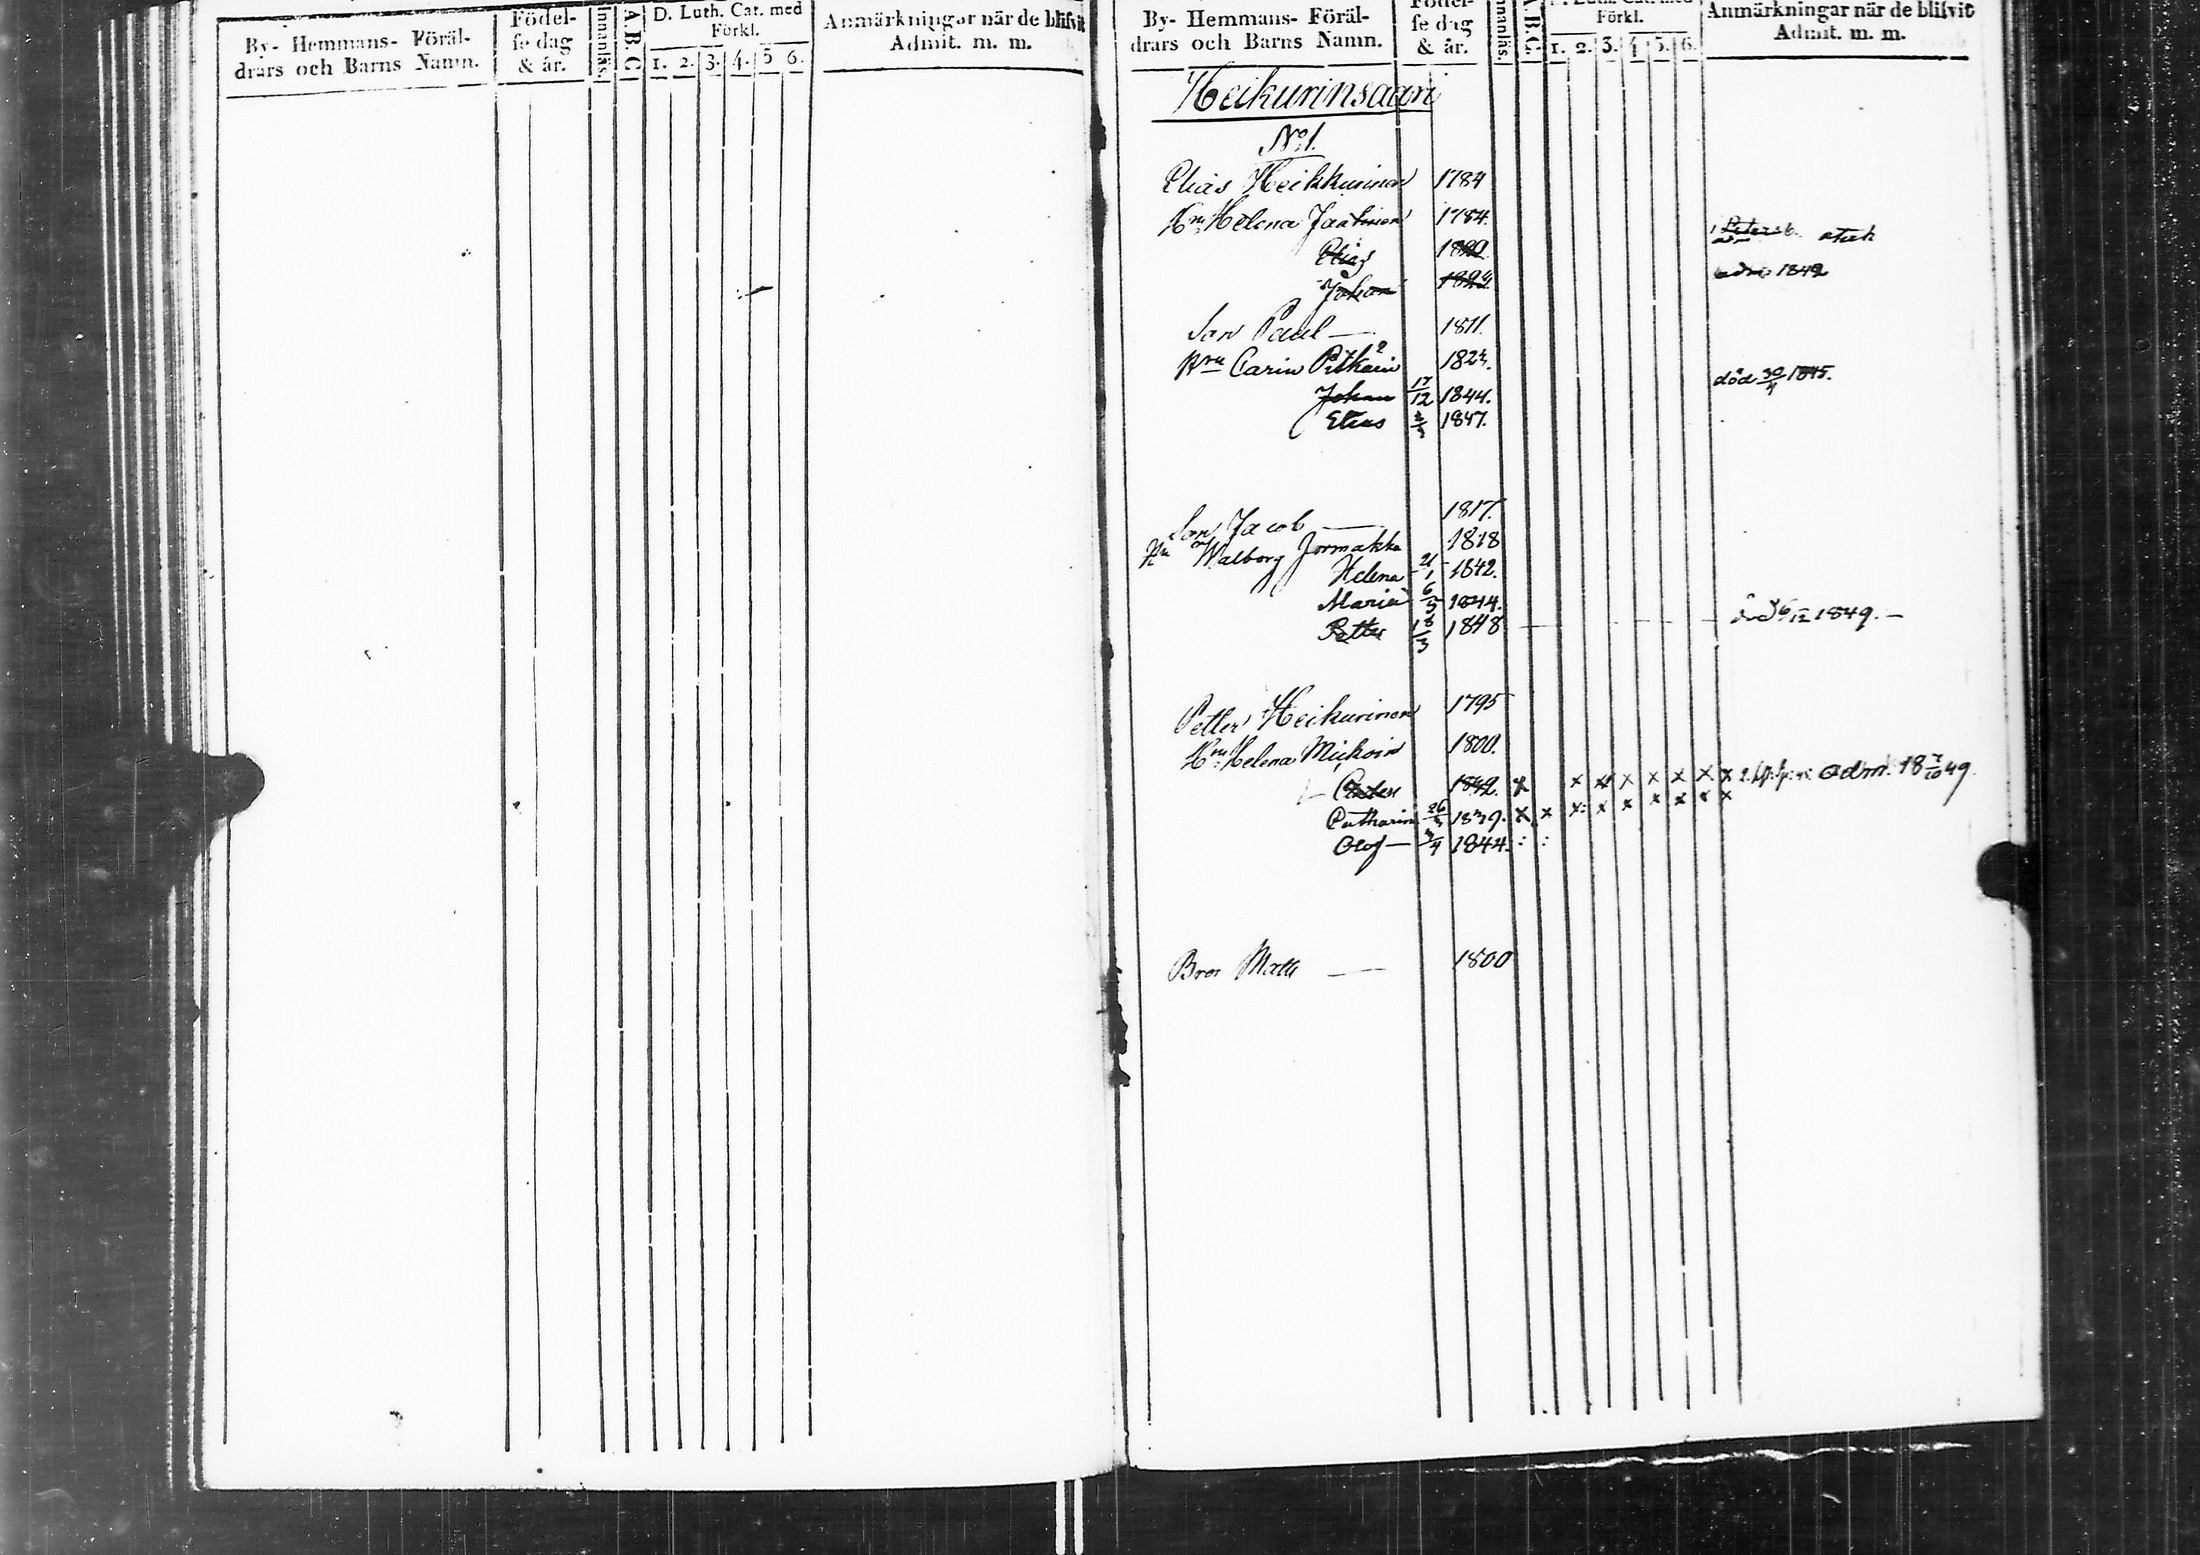 By- Hemmans- Föräl-
drars och Barns Namn.
Födel-
se dag
& år.
Innanläs.
A.B.C
D. Luth. Cat. med
Förkl.
1. 2. 3. 4. 5 6.
Anmärkningar när de blifvit
Admit. m. m.
By- Hemmans- Föräl-
drars och Barns Namn.
Födel-
se dag
& år.
Innanläs.
A.B.C.
D. Luth. Cat. med
Förkl.
1. 2. 3. 4 5. 6.
Anmärkningar när de blifvit
Admit. m. m.
Heikurinsaari
No 1.
Elias Heikkurinen 1784
Hru Helena Jaatinen 1784.
Elias
Johan adm 1842
Son Paul — 1811.
Hru Carin Pitkäin 1824.
Johan 17/12 1844. död 30/4 1845.
Elias 1847.
Son Jacob — 1817.
Hu Walborg Jormakka 1818
Helena 21/1 1842.
Maria 6/5 1844.
Petter 18/3 1848 — död 6/12 1849. —
Petter Heikurinen 1795
Hru Helena Mickoin 1800.
x x x x x x x x Adm. 18 7/10 49.
Catharina 26/3 1839. x x x x x x x x x
Olof — 3/4 1844. : :
Bror Matts — 1800